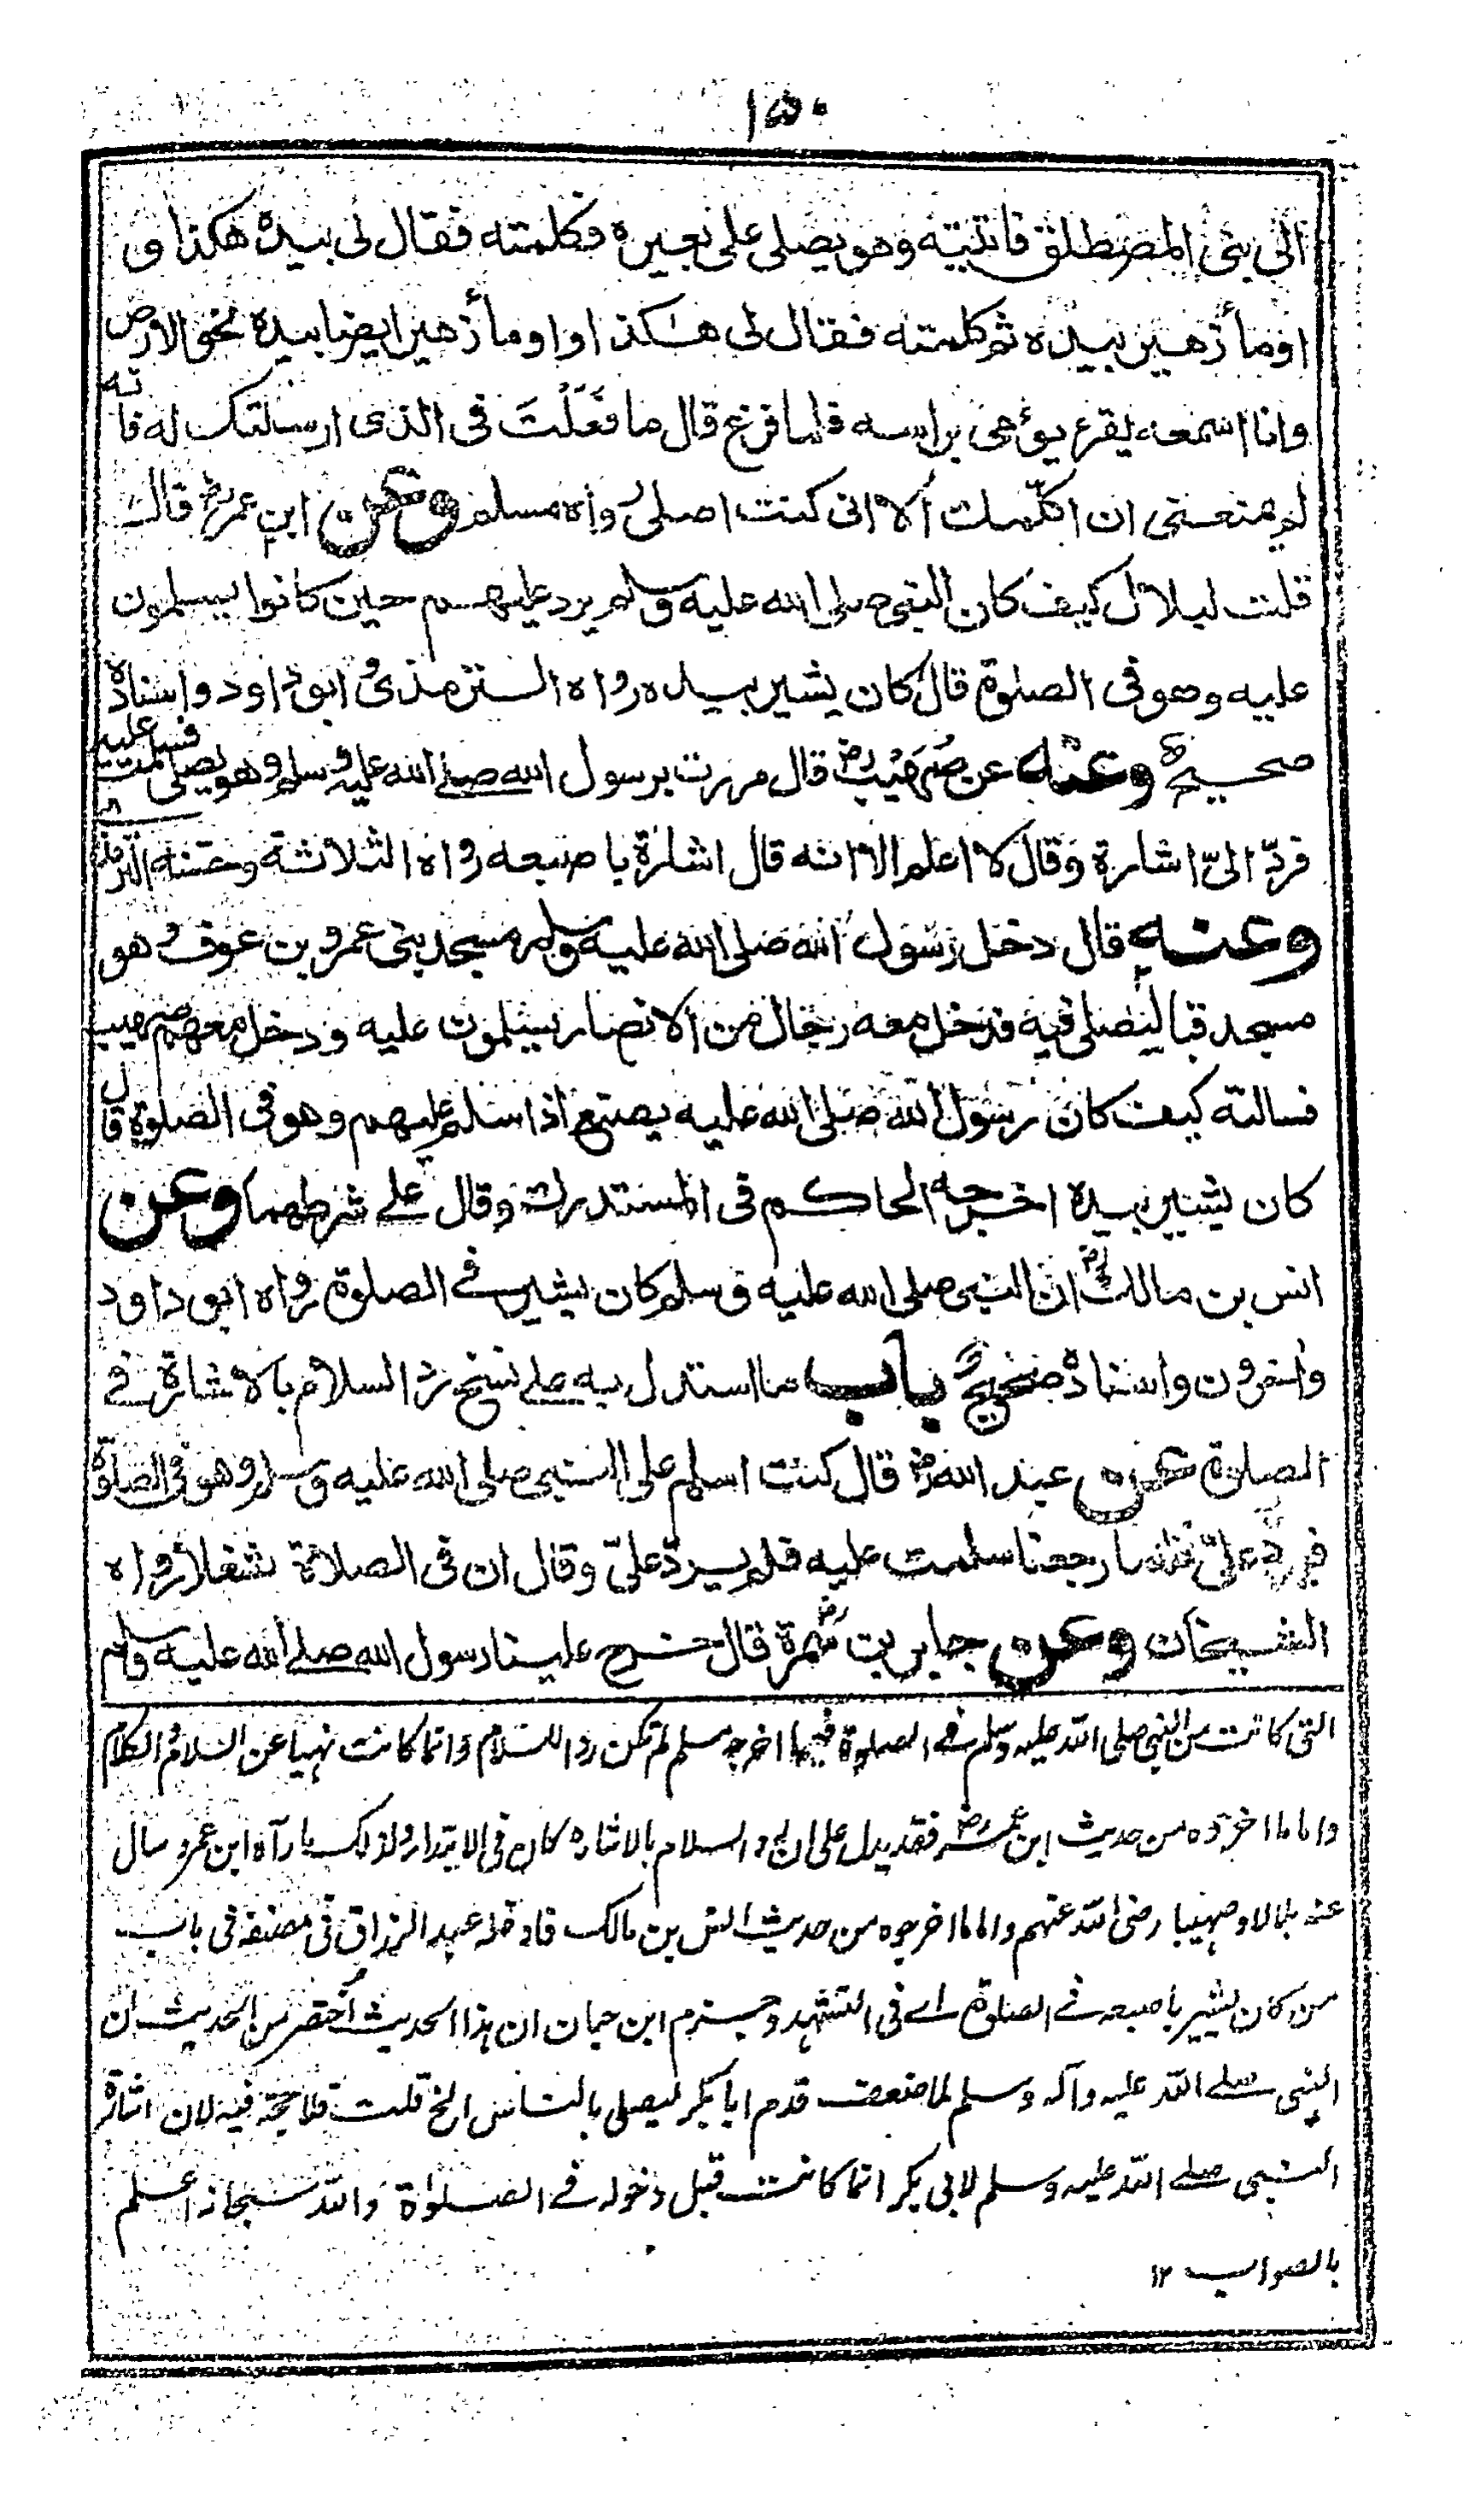 ١٥٠
الى بنى المصطلق فاتيته وهو يصلى على بعيره فكلمته فقال لى بيده هكذا و
اومأ زهير بيده ثم كلمته فقال لى هكذا واومأ زهير ايضا بيده نحو الارض
وانا اسمعه يقرء يؤمى براسه فلما فرغ قال ما فعلت فى الذى ارسلتك له فانه
لم يمنعنى ان اكلمك الا انى كنت اصلى رواه مسلم وعن ابن عمر رض قال
قلت لبلال كيف كان النبى صلى الله عليه وسلم يرد عليهم حين كانوا يسلمون
عليه وهو فى الصلوة قال كان يشير بيده رواه الترمذى وابو داود واسناده
صحيح وعنه عن صهيب رض قال مررت برسول الله صلى الله عليه وسلم وهو يصلى فسلمت عليه
فردّ الىّ اشارة وقال لا اعلم الا انه قال اشارة باصبعه رواه الثلاثة وحسنه الترمذى
وعنه قال دخل رسول الله صلى الله عليه وسلم مسجد بنى عمرو بن عوف وهو
مسجد قبا ليصلى فيه فدخل معه رجال من الانصار يسلمون عليه ودخل معهم صهيب
فسالته كيف كان رسول الله صلى الله عليه يصنع اذا سلم عليهم وهو فى الصلوة قال
كان يشير بيده اخرجه الحاكم فى المستدرك وقال على شرطهما وعن
انس بن مالك رض ان النبى صلى الله عليه وسلم كان يشير فى الصلوة رواه ابو داود
واخرون واسناده صحيح باب ما استدل به على نسخ رد السلام بالاشارة فى
الصلوة عن عبد الله رض قال كنت اسلم على النبى صلى الله عليه وسلم وهو فى الصلوة
فيردّ علىّ فلما رجعنا سلمت عليه فلم يردّ علىّ وقال ان فى الصلاة شغلا رواه
الشيخان وعن جابر بن سمرة رض قال خرج علينا رسول الله صلى الله عليه وسلم
التى كانت من النبى صلى الله عليه وسلم فى الصلوة فيما اخرجه مسلم لم تكن رد السلام وانما كانت نهيا عن السلام والكلام
واما ما اخرجوه من حديث ابن عمر رض فقد يدل على ان رد السلام بالاشاره كان فى الابتداء ولذلك ما رآه ابن عمر وسال
عنه بلالا وصهيبا رضى الله عنهم واما ما اخرجوه من حديث انس بن مالك فادخله عبد الرزاق فى مصنفه فى باب
من كان يشير باصبعه فى الصلوة اے فى التشهد وجزم ابن حبان ان هذا الحديث اختصر من الحديث ان
النبى صلے الله عليه وآله وسلم لما ضعف قدم ابا بكر ليصلى بالناس الخ قلت فلا حجة فيه لان اشارة
النبى صلے الله عليه وسلم لابى بكر انما كانت قبل دخوله فے الصلواة والله سبحانه اعلم
بالصواب ١٢